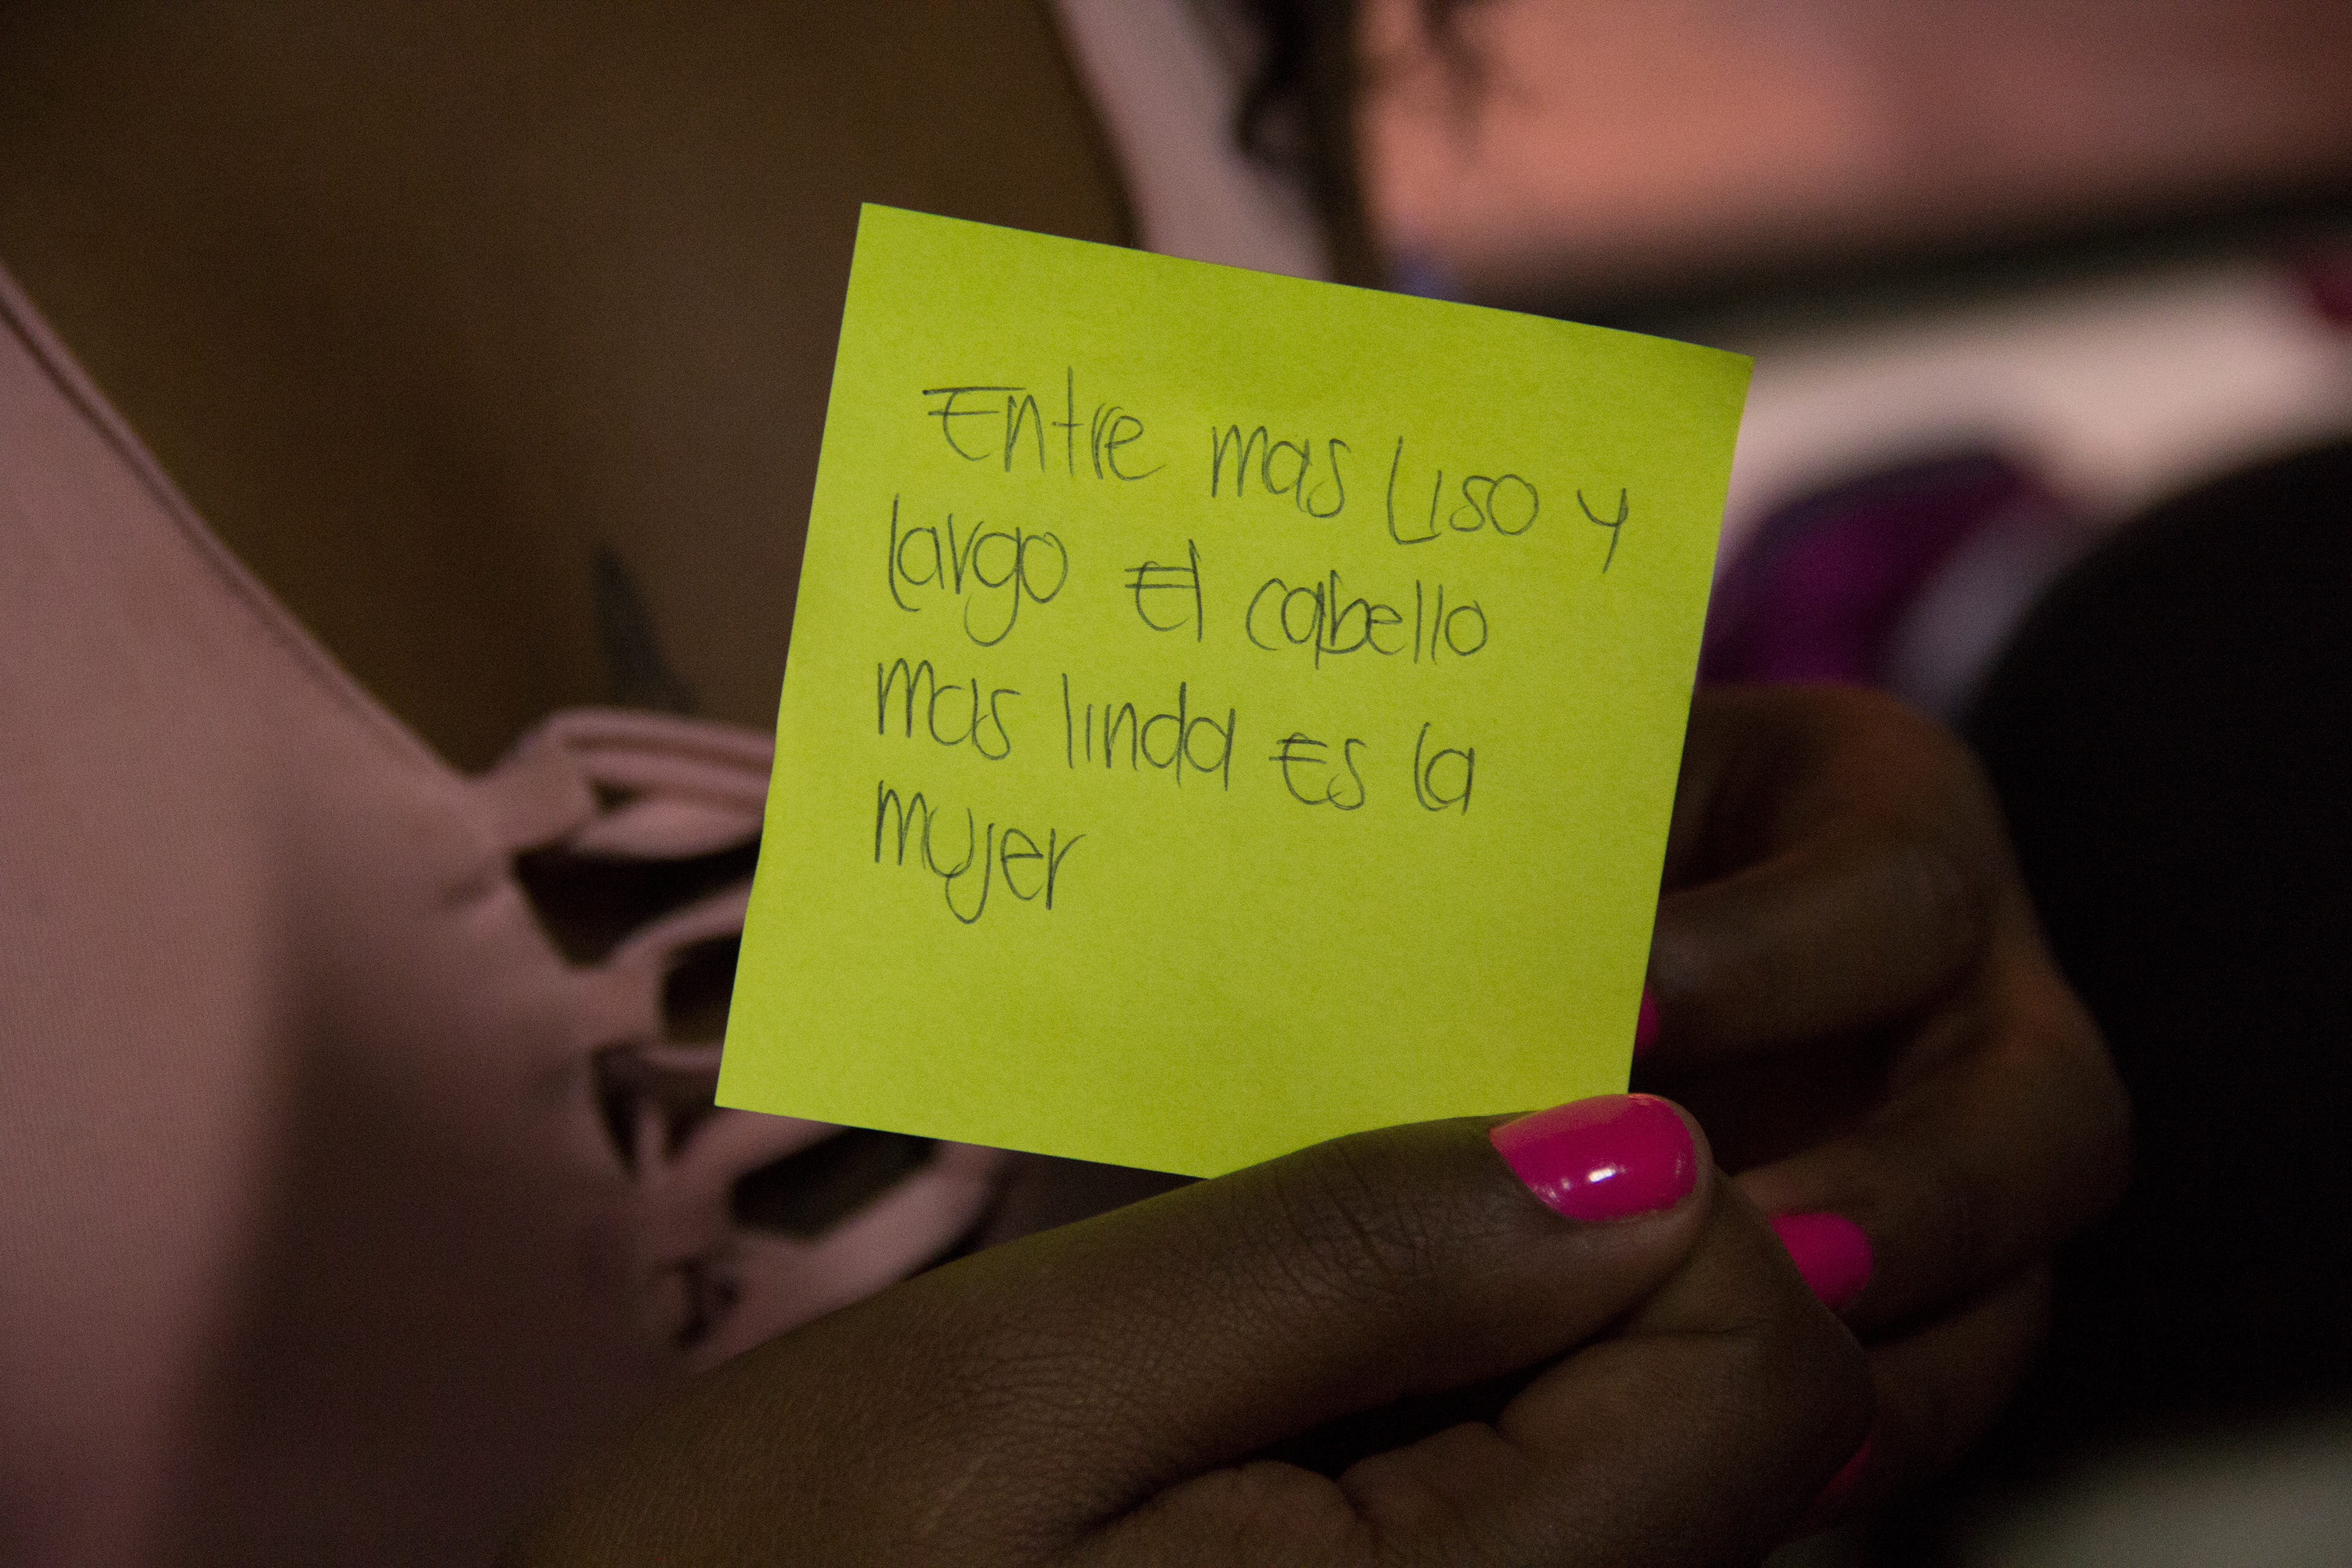 Entre mas Liso y
largo El cabello
mas linda Es la
mujer